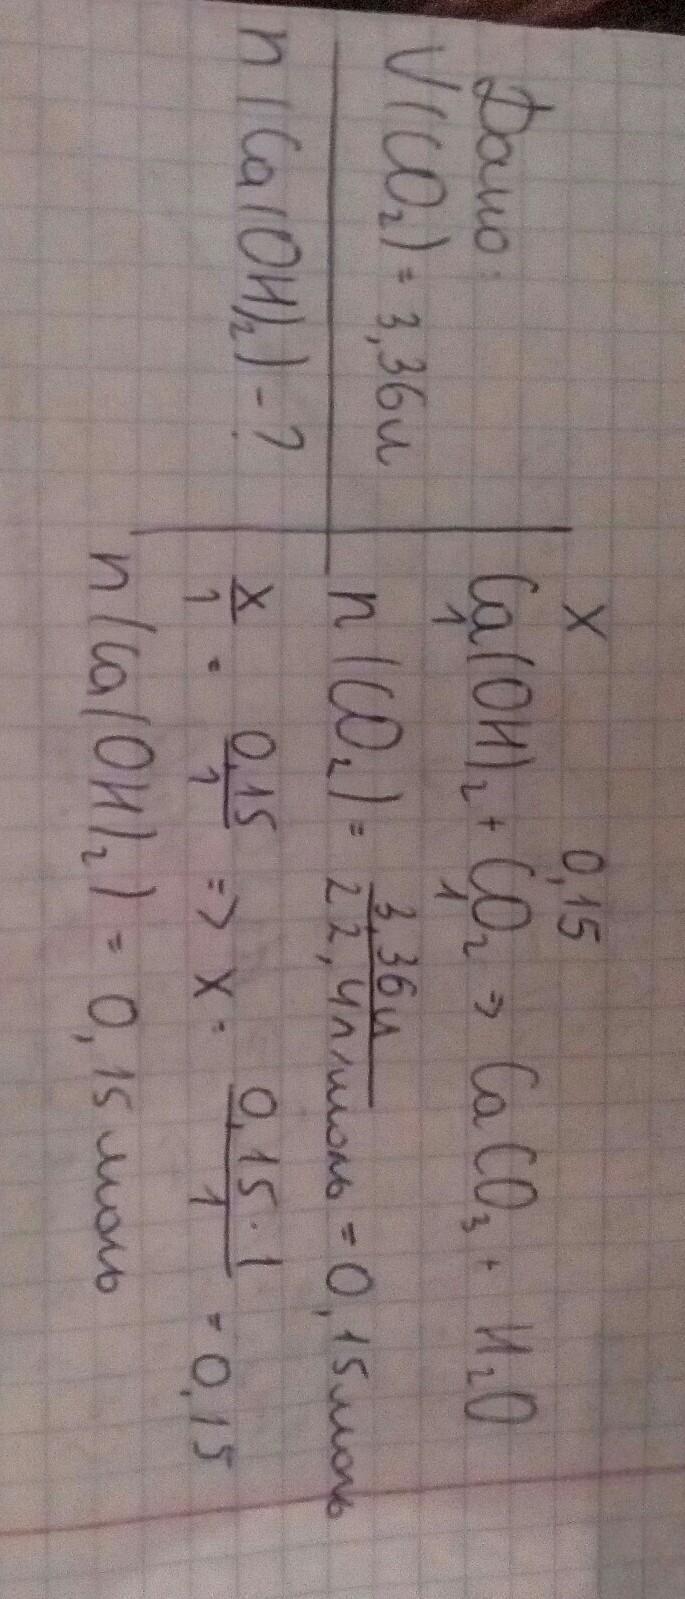 Дано:
V(CO₂) = 3,36л
n(Ca(OH)₂) - ?
x 0,15
Ca(OH)₂ + CO₂ => CaCO₃ + H₂O
1 1
n(CO₂) = 3,36л / 22,4л/моль = 0,15моль
x/1 = 0,15/1 => x = 0,15·1/1 = 0,15
n(Ca(OH)₂) = 0,15моль